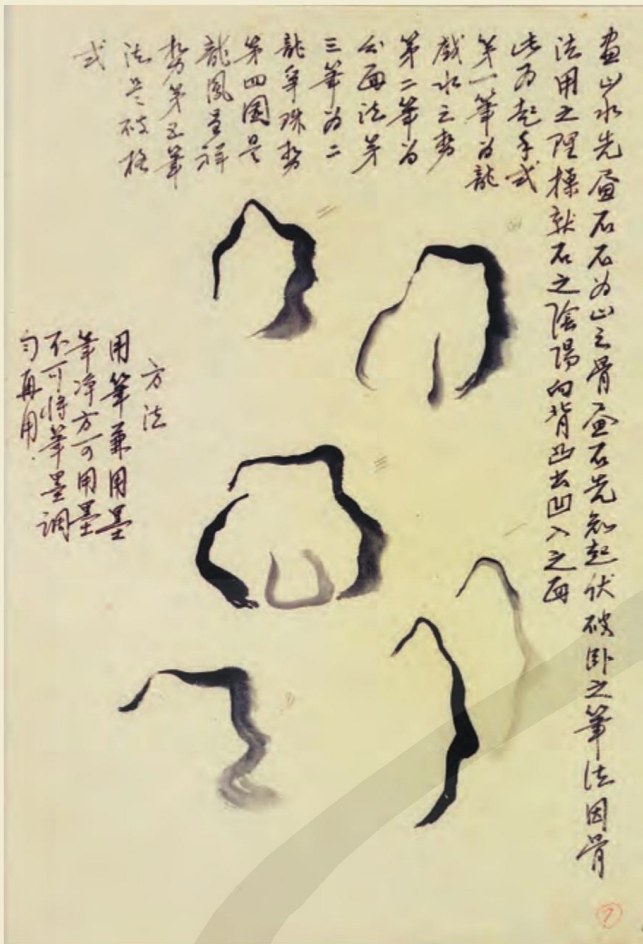 畫山水先畫石石为山之骨畫石先知起伏破卧之筆法因骨
法用之理操就石之陰陽向背凸出凹入之面
此为起手式
第一筆为龍
戲水之勢
第二筆为
分面法第
三筆为二
龍爭珠勢
第四圖是
龍鳳呈祥
勢第五筆
法是破格
式
方法
用筆兼用墨
筆净方可用墨
不可將筆墨調
勻再用.
一
二
三
四
五
7